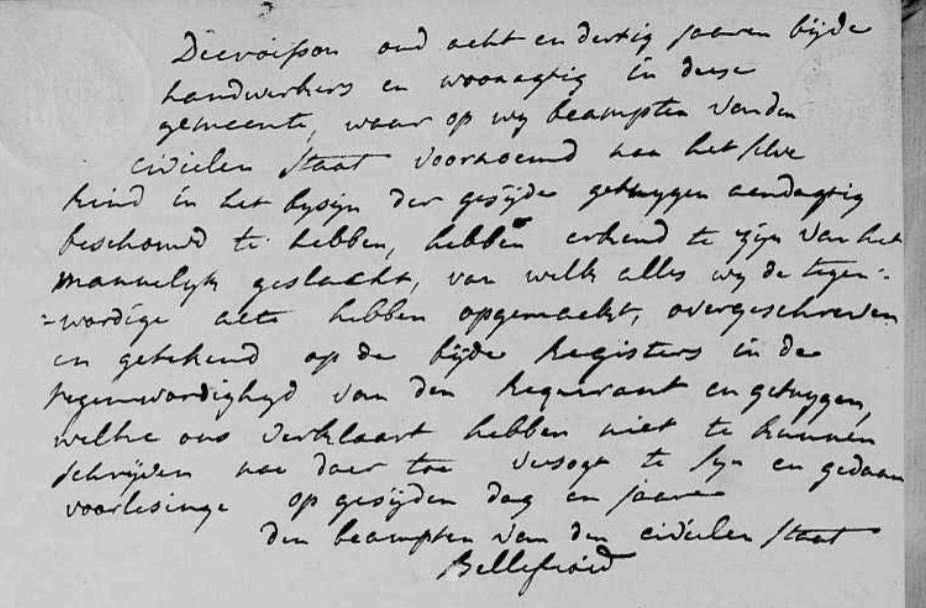 Dievoisson oud acht en dertig jaaren bijde
handwerkers en woonagtig in dese
gemeente, waar op wij beampten van den
civielen staat voornoemd naa het selve
kind in het bijsijn der gesijde getuygen aendagtig
beschouwd te hebben, hebben erkend te zijn van het
mannelijk geslacht, van welk alles wij de tegen-
-wordige acte hebben opgemackt, overgeschreven
en getekend op de bijde registers in de
tegenwordigheyd van den requirant en getuygen,
welke ons verklaart hebben niet te kunnen
schrijven nae daer toe versogt te sijn en gedaan
voorlesinge op gesijden dag en jaare
den beampten van den civielen staat
Bellefroid